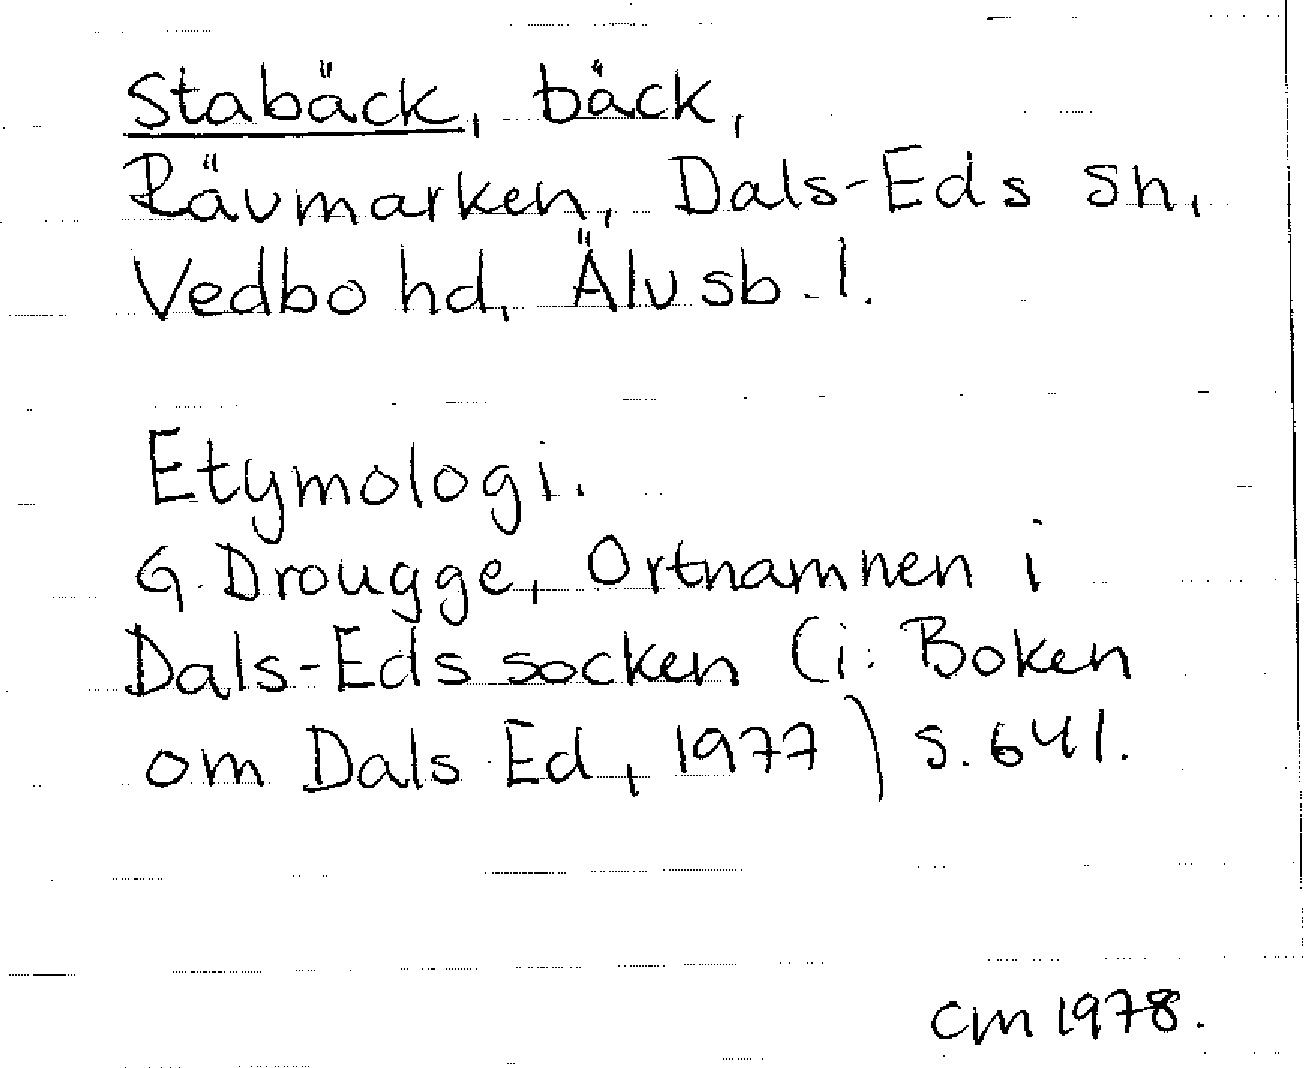 Stabäck, bäck,
Rävmarken, Dals-Eds sn,
Vedbo hd, Älvsb. l.
Etymologi.
G. Drougge, Ortnamnen i
Dals-Eds socken (i: Boken
om Dals Ed, 1977) s. 641.
CM 1978.